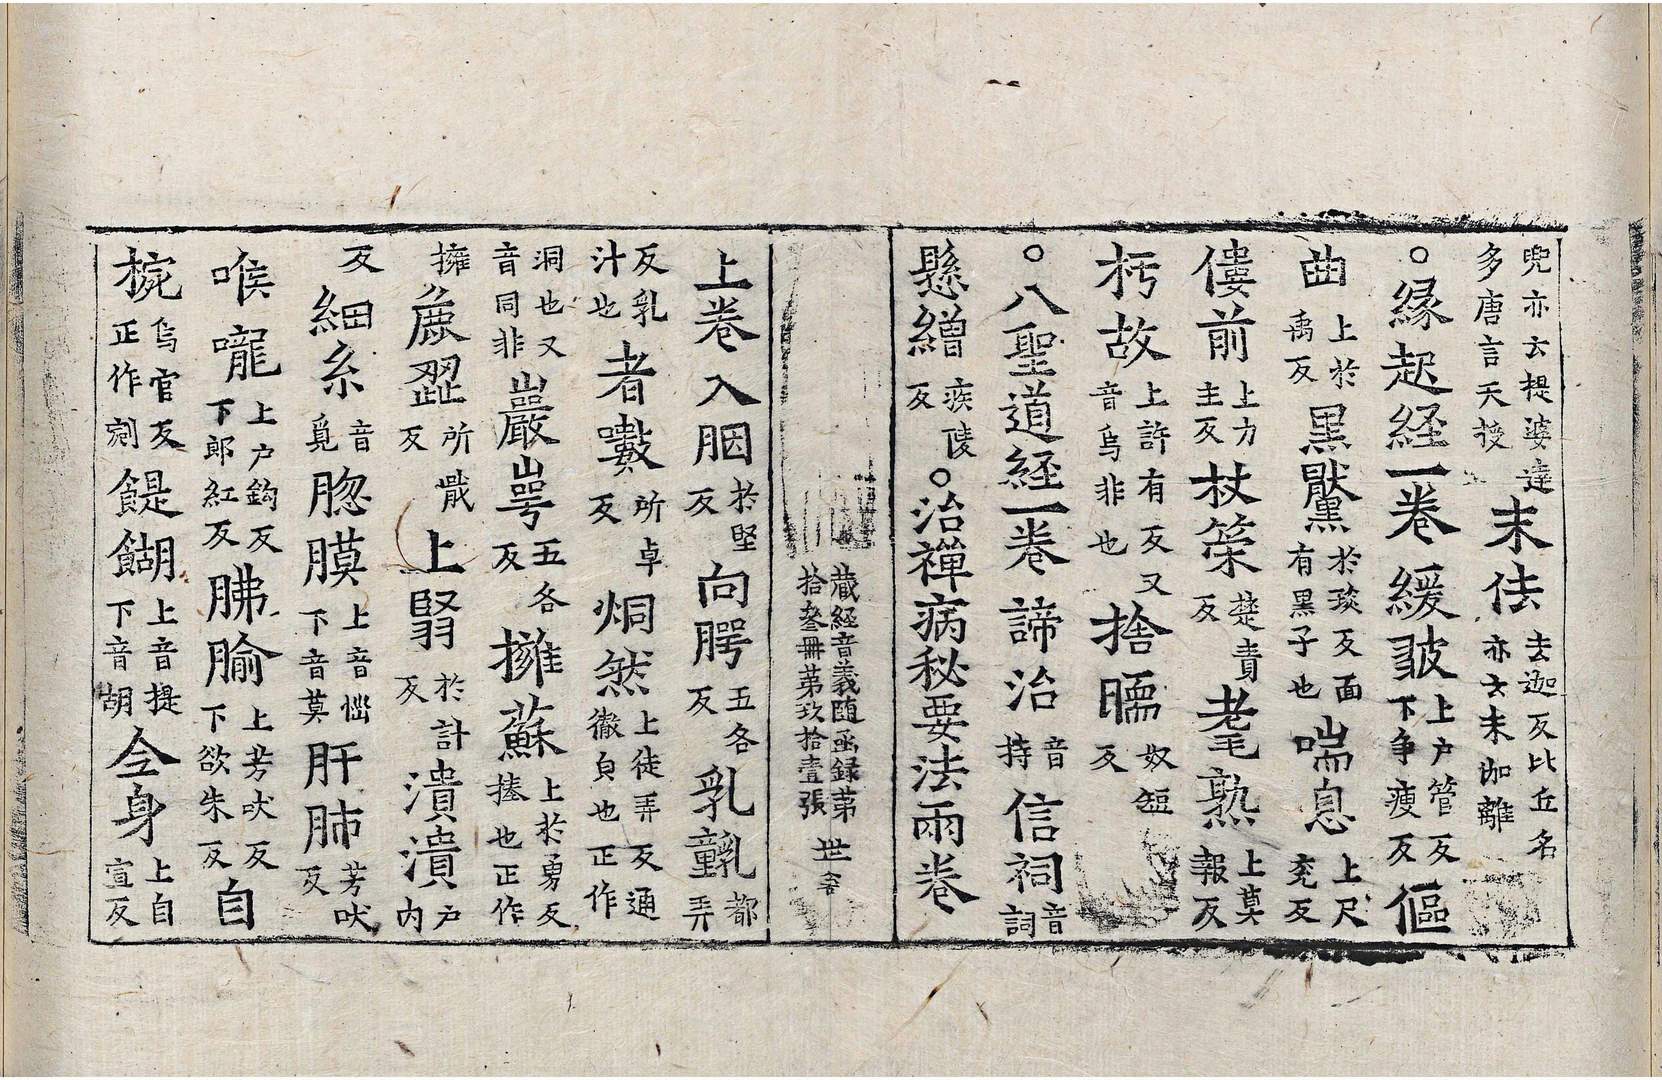 兜亦云提婆達多唐言天授 末佉 去迦反比丘名亦云末伽離
○縁起経一卷 緩皷 上户管反下争瘦反 傴
曲 上於禹反 黒黶 於琰反面有黒子也 喘息 上尺兖反
僂前 上力主反 杖筞 楚責反 耄熟 上莫報反
杇故 上許有反又音烏非也 捨臑 奴短反
○八聖道経一卷 諦治 音持 信祠 音詞
懸繒 疾陵反 ○治禪病秘要法兩卷
藏経音義随函録第拾叁冊第玖拾壹張 世舎
上卷 入胭 於堅反 向腭 五各反 乳䡴 都弄
反乳汁也 者嗽 所卓反 烔然 上徒弄反通徹皃也正作
洞也又音同非 巖㟧 五各反 擁蘇 上於勇反搼也正作
擁 麁澀 所戢反 上毉 於計反 潰潰 户内
反 細糸 音覓 䐉膜 上音惱下音莫 肝肺 芳吠反
喉嚨 上户鈎反下郎紅反 胇腧 上芳吠反下欲朱反 自
椀 烏官反正作剜 醍餬 上音提下音胡 全身 上自宣反